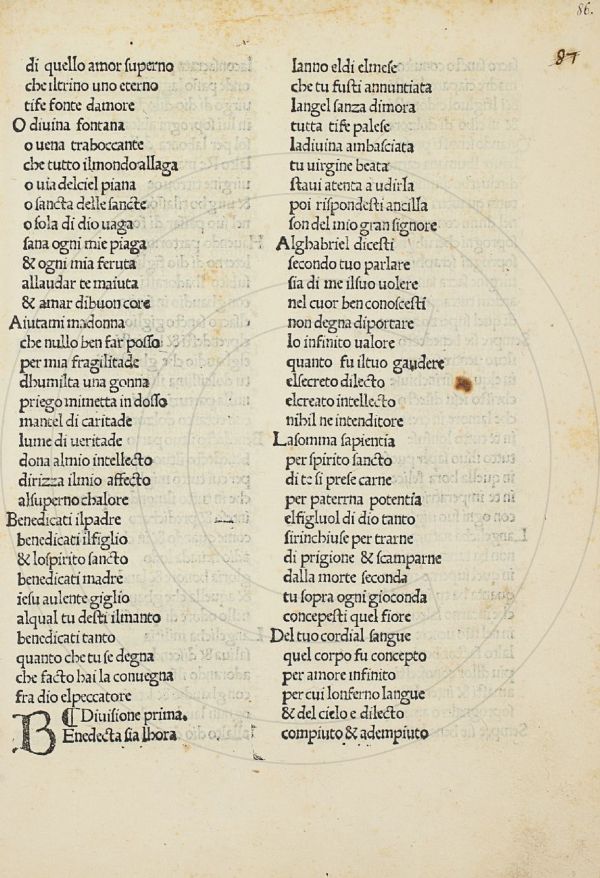 86.
87
di quello amor superno
che iltrino uno eterno
tife fonte damore
O diuina fontana
o uena traboccante
che tutto ilmondo allaga
o uia delciel piana
o sancta delle sancte
o sola di dio uaga
sana ogni mie piaga
& ogni mia feruta
allaudar te maiuta
& amar dibuon core
Aiutami madonna
che nullo ben far posso
per mia fragilitade
dhumilta una gonna
priego mimetta in dosso
mantel di caritade
lume di ueritade
dona almio intellecto
dirizza ilmio affecto
alsuperno chalore
Benedicati ilpadre
benedicati ilfiglio
& lospirito sancto
benedicati madre
iesu aulente giglio
alqual tu desti ilmanto
benedicati tanto
quanto che tu se degna
che facto hai la conuegna
fra dio elpeccatore
¶ Diuisione prima.
BEnedecta sia lhora
lanno eldi elmese
che tu fusti annuntiata
langel sanza dimora
tutta tife palese
ladiuina ambasciata
tu uirgine beata
staui atenta a udirla
poi rispondesti ancilla
son del mio gran signore
Alghabriel dicesti
secondo tuo parlare
sia di me ilsuo uolere
nel cuor ben conoscesti
non degna diportare
lo infinito ualore
quanto fu iltuo gaudere
elsecreto dilecto
elcreato intellecto
nihil ne intenditore
Lasomma sapientia
per spirito sancto
di te si prese carne
per paterrna potentia
elfigluol di dio tanto
sirinchiuse per trarne
di prigione & scamparne
dalla morte seconda
tu sopra ogni gioconda
concepesti quel fiore
Del tuo cordial sangue
quel corpo fu concepto
per amore infinito
per cui lonferno langue
& del cielo e dilecto
compiuto & adempiuto